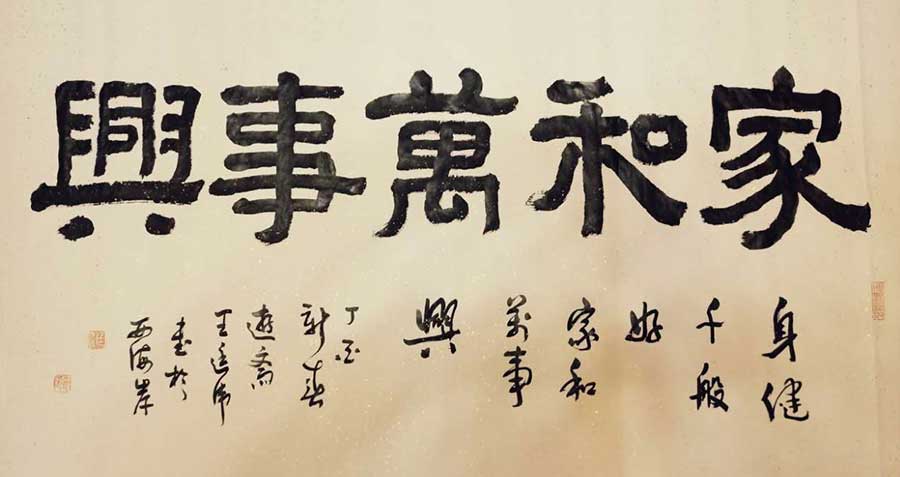 家和萬事興
身健
千般
好
家和
萬事
興
丁酉
新春
逸斋
王廷
書於
西海岸